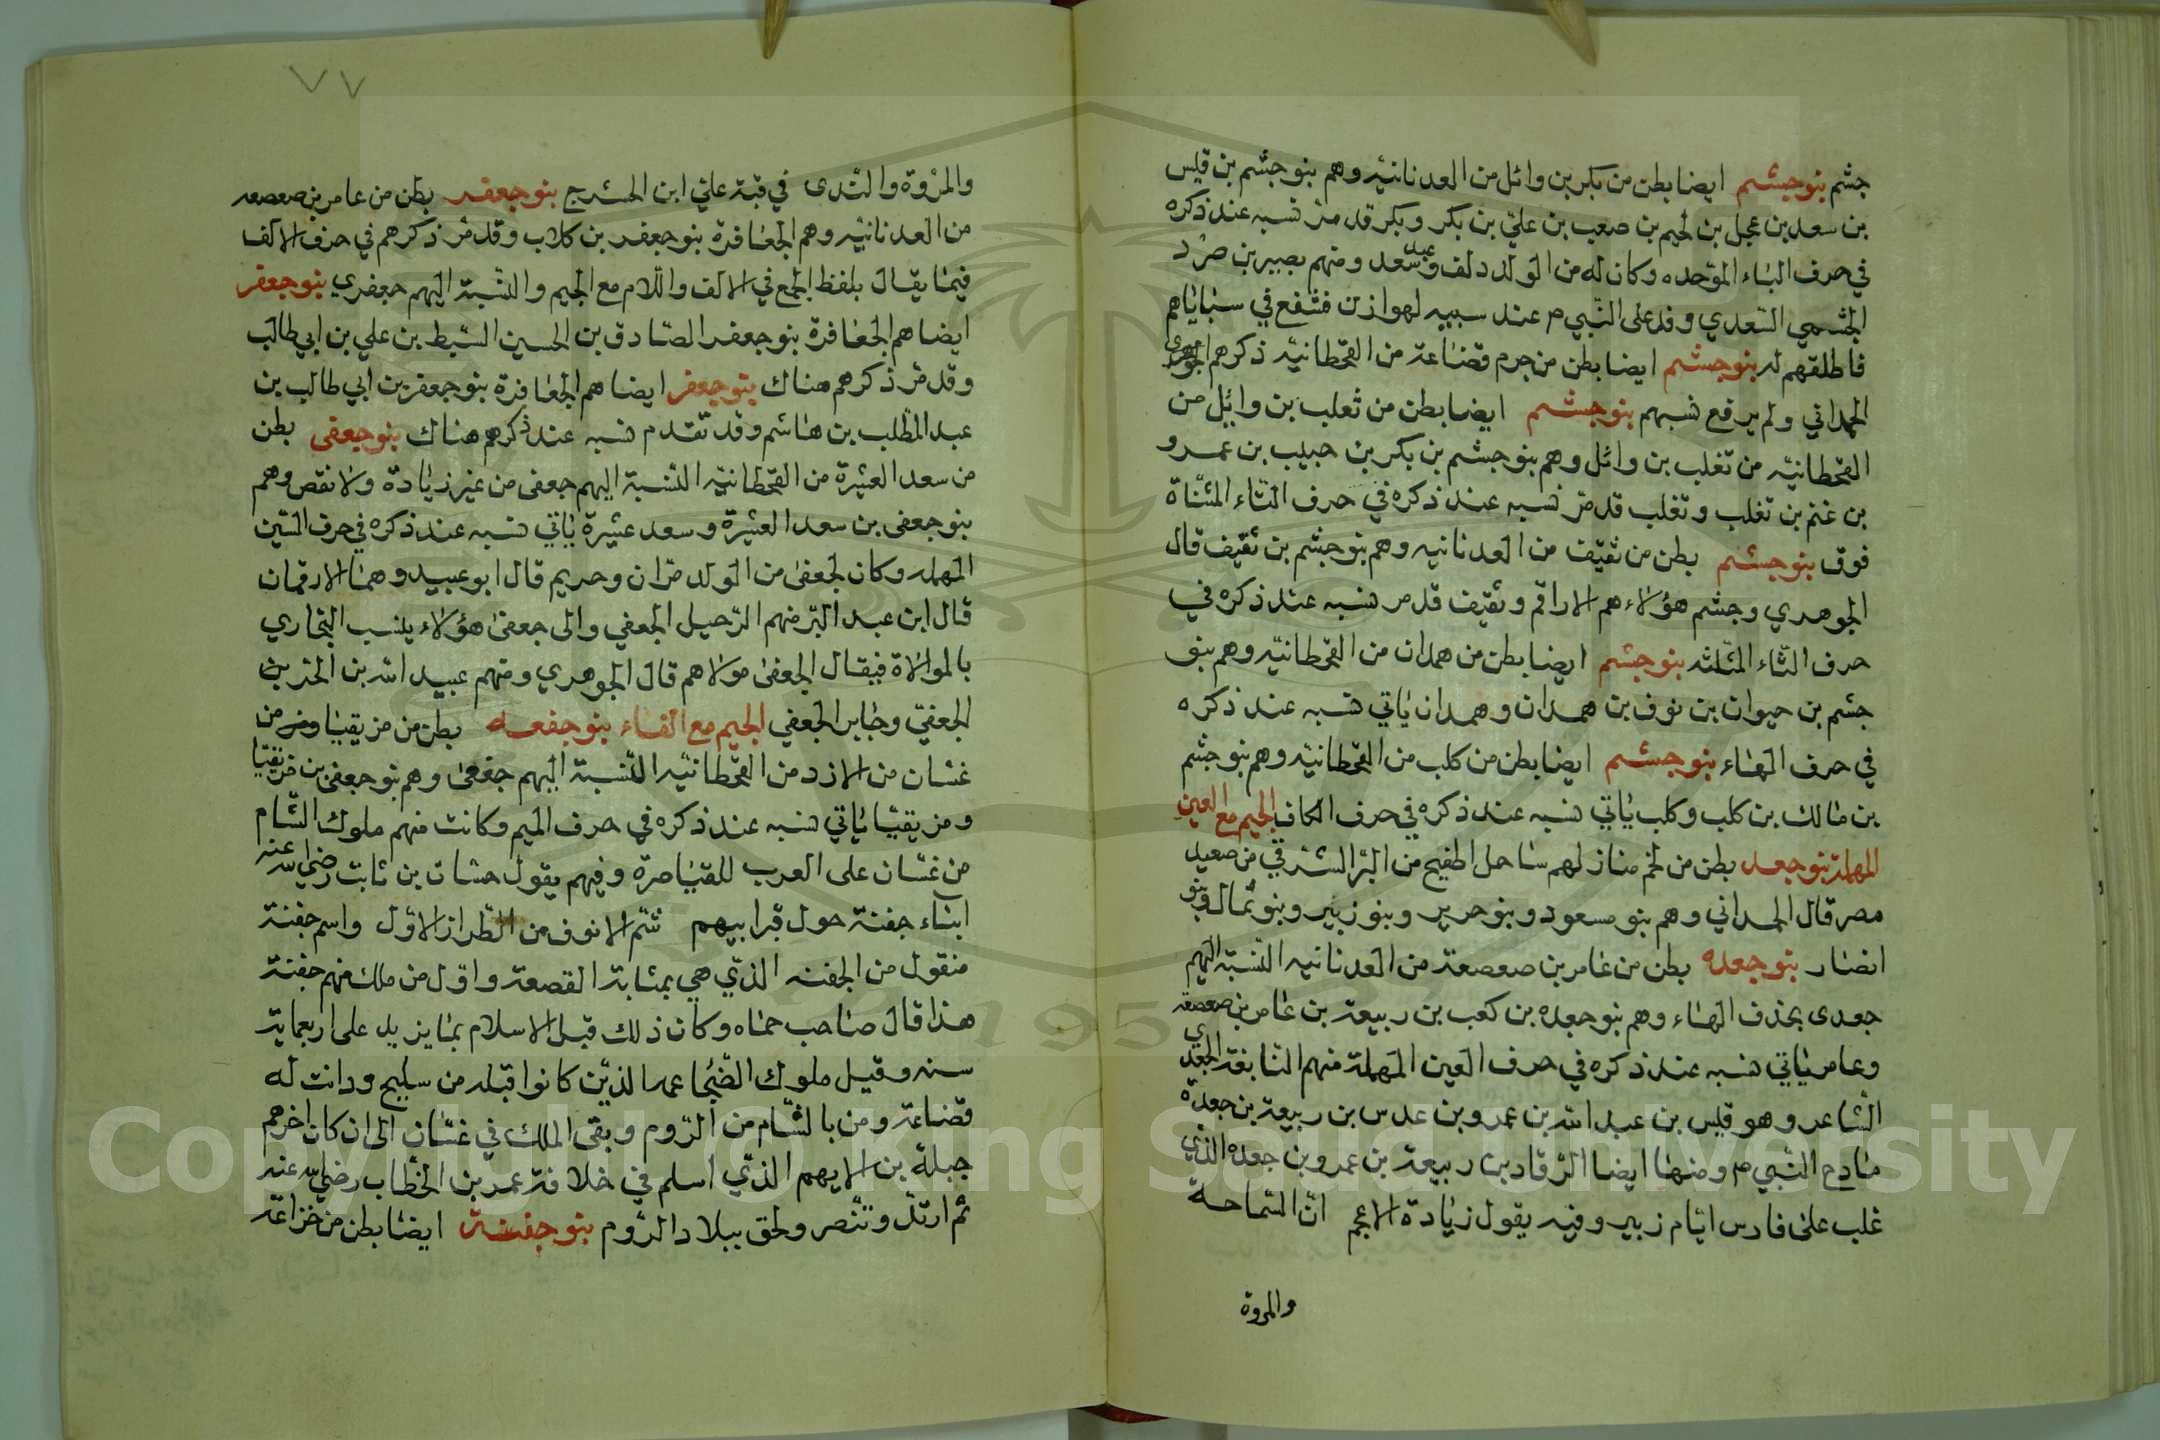 جشم بنو جشم ايضا بطن من بكر بن وائل من العدنانيه وهم بنو جشم بن قيس
بن سعد بن عجل بن لجيم بن صعب بن علي بن بكر وبكر قد مر نسبه عند ذكره
في حرف الباء الموحده وكان له من الولد دلف وعبد سعد ومنهم بصير بن صرد
الجشمي السعدي وفد على النبي م عند سبيه لهوازن فشفع في سباياهم
فاطلقهم له بنو جشم ايضا بطن من جرم قضاعة من القحطانيه ذكرهم الجوهري
الحمداني ولم يرفع نسبهم بنو جشم ايضا بطن من ثعلب بن وايل من
القحطانيه من تغلب بن وائل وهم بنو جشم بن بكر بن حبيب بن عمرو
بن غنم بن تغلب وتغلب قد مر نسبه عند ذكره في حرف التاء المثناة
فوق بنو جشم بطن من ثقيف من العدنانيه وهم بنو جشم بن ثقيف قال
الجوهري وجشم هؤلاء هم الاراقم وثقيف قد مر نسبه عند ذكره في
حرف الثاء المثلثه بنو جشم ايضا بطن من همدان من القحطانيه وهم بنو
جشم بن حيوان بن نوف بن همدان وهمدان ياتي نسبه عند ذكره
في حرف الهاء بنو جشم ايضا بطن من كلب من القحطانيه وهم بنو جشم
بن مالك بن كلب وكلب ياتي نسبه عند ذكره في حرف الكاف الجيم مع العين
المهملة بنو جعد بطن من لخم منازلهم ساحل اطفيح من البر الشرقي من صعيد
مصر قال الحمداني وهم بنو مسعود وبنو حرير وبنو زبير وبنو ثمال وبنو
انضار بنو جعده بطن من عامر بن صعصعة من العدنانيه النسبة اليهم
جعدى بحذف الهاء وهم بنو جعده بن كعب بن ربيعة بن عامر بن صعصعة
وعامر ياتي نسبه عند ذكره في حرف العين المهملة منهم النابغة الجعدي
الشاعر وهو قيس بن عبد الله بن عمرو بن عدس بن ربيعة بن جعدة
مادح النبي م ومنها ايضا الرقاد بن ربيعة بن عمرو بن جعده الذي
غلب على فارس ايام زبير وفيه يقول زيادة الاعجم ان السماحه
والمروة
والمروة والندى في قبة على ابن الحشرج بنو جعفر بطن من عامر بن صعصعه
من العدنانيه وهم الجعافرة بنو جعفر بن كلاب وقد مر ذكرهم في حرف الالف
فيما يقال بلفظ الجمع في الالف واللام مع الجيم والنسبة اليهم جعفري بنو جعفر
ايضا هم الجعافرة بنو جعفر الصادق بن الحسين السبط بن علي بن ابي طالب
وقد مر ذكرهم هناك بنو جعفر ايضا هم الجعافرة بنو جعفر بن ابي طالب بن
عبد المطلب بن هاشم وقد تقدم نسبه عند ذكرهم هناك بنو جعفى بطن
من سعد العشيرة من القحطانيه النسبة اليهم جعفى من غير زيادة ولا نقص وهم
بنو جعفى بن سعد العشيرة وسعد عشيرة ياتي نسبه عند ذكره في حرف السين
المهمله وكان لجعفى من الولد مران وحريم قال ابو عبيد وهما الارقمان
قال ابن عبد البر منهم الرحيل الجعفي والى جعفى هؤلاء ينسب البخاري
بالموالاة فيقال الجعفى مولاهم قال الجوهري ومنهم عبيد الله بن الحر بن
الجعفي وجابر الجعفي الجيم مع الفاء بنو جفعه بطن من مزيقيا ومر من
غسان من الازد من القحطانيه النسبة اليهم جفعى وهم بنو جعفى بن مزيقيا
ومزيقيا ياتي نسبه عند ذكره في حرف الميم وكانت منهم ملوك الشام
من غسان على العرب للقياصرة وفيهم يقول حسان بن ثابت رضى الله عنه
ابناء جفنة حول قبر ابيهم شم الانوف من الطراز الاول واسم جفنة
منقول من الجفنه الذي هي بمثابة القصعة واول من ملك منهم جفنة
هذا قال صاحب حماه وكان ذلك قبل الاسلام بما يزيد على اربعماية
سنه وقيل ملوك الضجاعمه الذين كانوا قبله من سليح ودانت له
قضاعة ومن بالشام من الروم وبقى الملك في غسان الى ان كان اخرهم
جبلة بن الايهم الذي اسلم في خلافة عمر بن الخطاب رضى الله عنه
ثم ارتد وتنصر ولحق ببلاد الروم بنو جفنة ايضا بطن من خزاعة
٧٧
Copyright © King Saud University
195